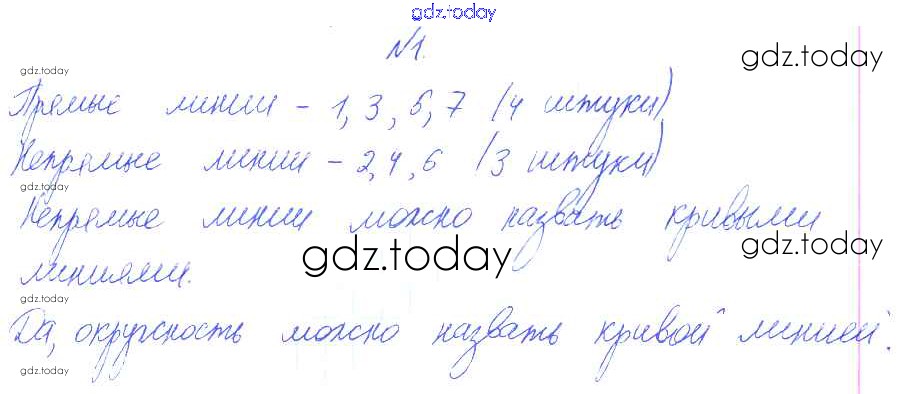 gdz.today
№1.
gdz.today
gdz.today
Прямые линии - 1, 3, 5, 7 (4 штуки)
gdz.today
Непрямые линии - 2, 4, 6 (3 штуки)
gdz.today
Непрямые линии можно назвать кривыми
gdz.today
gdz.today
линиями.
gdz.today
Да, окружность можно назвать кривой линией.
gdz.today